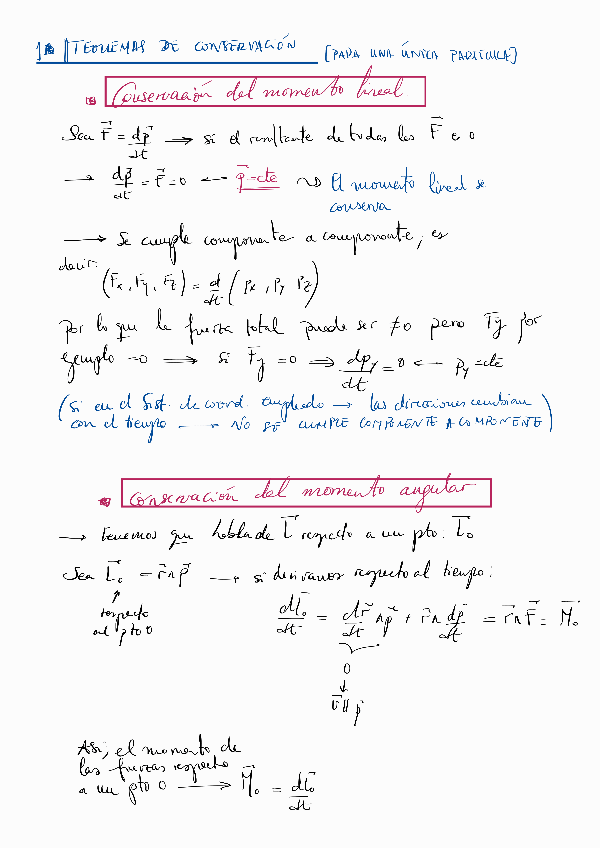 TEOREMAS DE CONSERVACIÓN [PARA UNA ÚNICA PARTÍCULA]
Conservación del momento lineal
Sea F⃗ = dp⃗/dt → si el resultante de todas las F⃗ e 0
→ dp⃗/dt = F⃗ = 0 ← p⃗=cte ⇝ El momento lineal se
conserva
→ Se cumple componente a componente, es
decir:
(Fx, Fy, Fz) = d/dt (px, py, pz)
Por lo que la fuerza total puede ser ≠0 pero Fy por
ejemplo =0 ⟹ si Fy = 0 ⟹ dpy/dt = 0 ← py=cte
(Si en el Sist. de coord. empleado → las direcciones cambian
con el tiempo → NO SE CUMPLE COMPONENTE A COMPONENTE)
Conservación del momento angular
→ Tenemos que hablar de L⃗ respecto a un pto. L⃗₀
Sea L⃗₀ = r⃗∧p⃗ → si derivamos respecto al tiempo:
respecto
al pto 0
dL⃗₀/dt = dr⃗/dt ∧p⃗ + r⃗∧ dp⃗/dt = r⃗∧F⃗ = M⃗₀
0
↓
v⃗ ∥ p⃗
Así, el momento de
las fuerzas respecto
a un pto 0 → M⃗₀ = dL⃗₀/dt